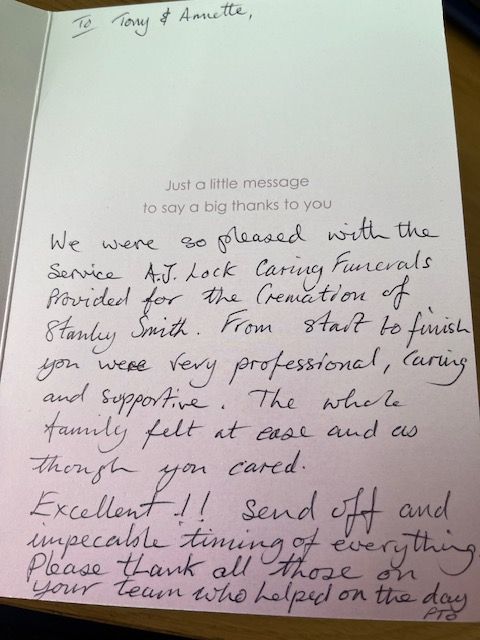 To Tony & Annette,
Just a little message
to say a big thanks to you
We were so pleased with the
Service A.J. Lock Caring Funerals
Provided for the Cremation of
Stanley Smith. From start to finish
you were very professional, Caring
and supportive. The whole
family felt at ease and as
though you cared.
Excellent!! Send off and
impecable timing of everything.
Please thank all those on
your team who helped on the day
PTO